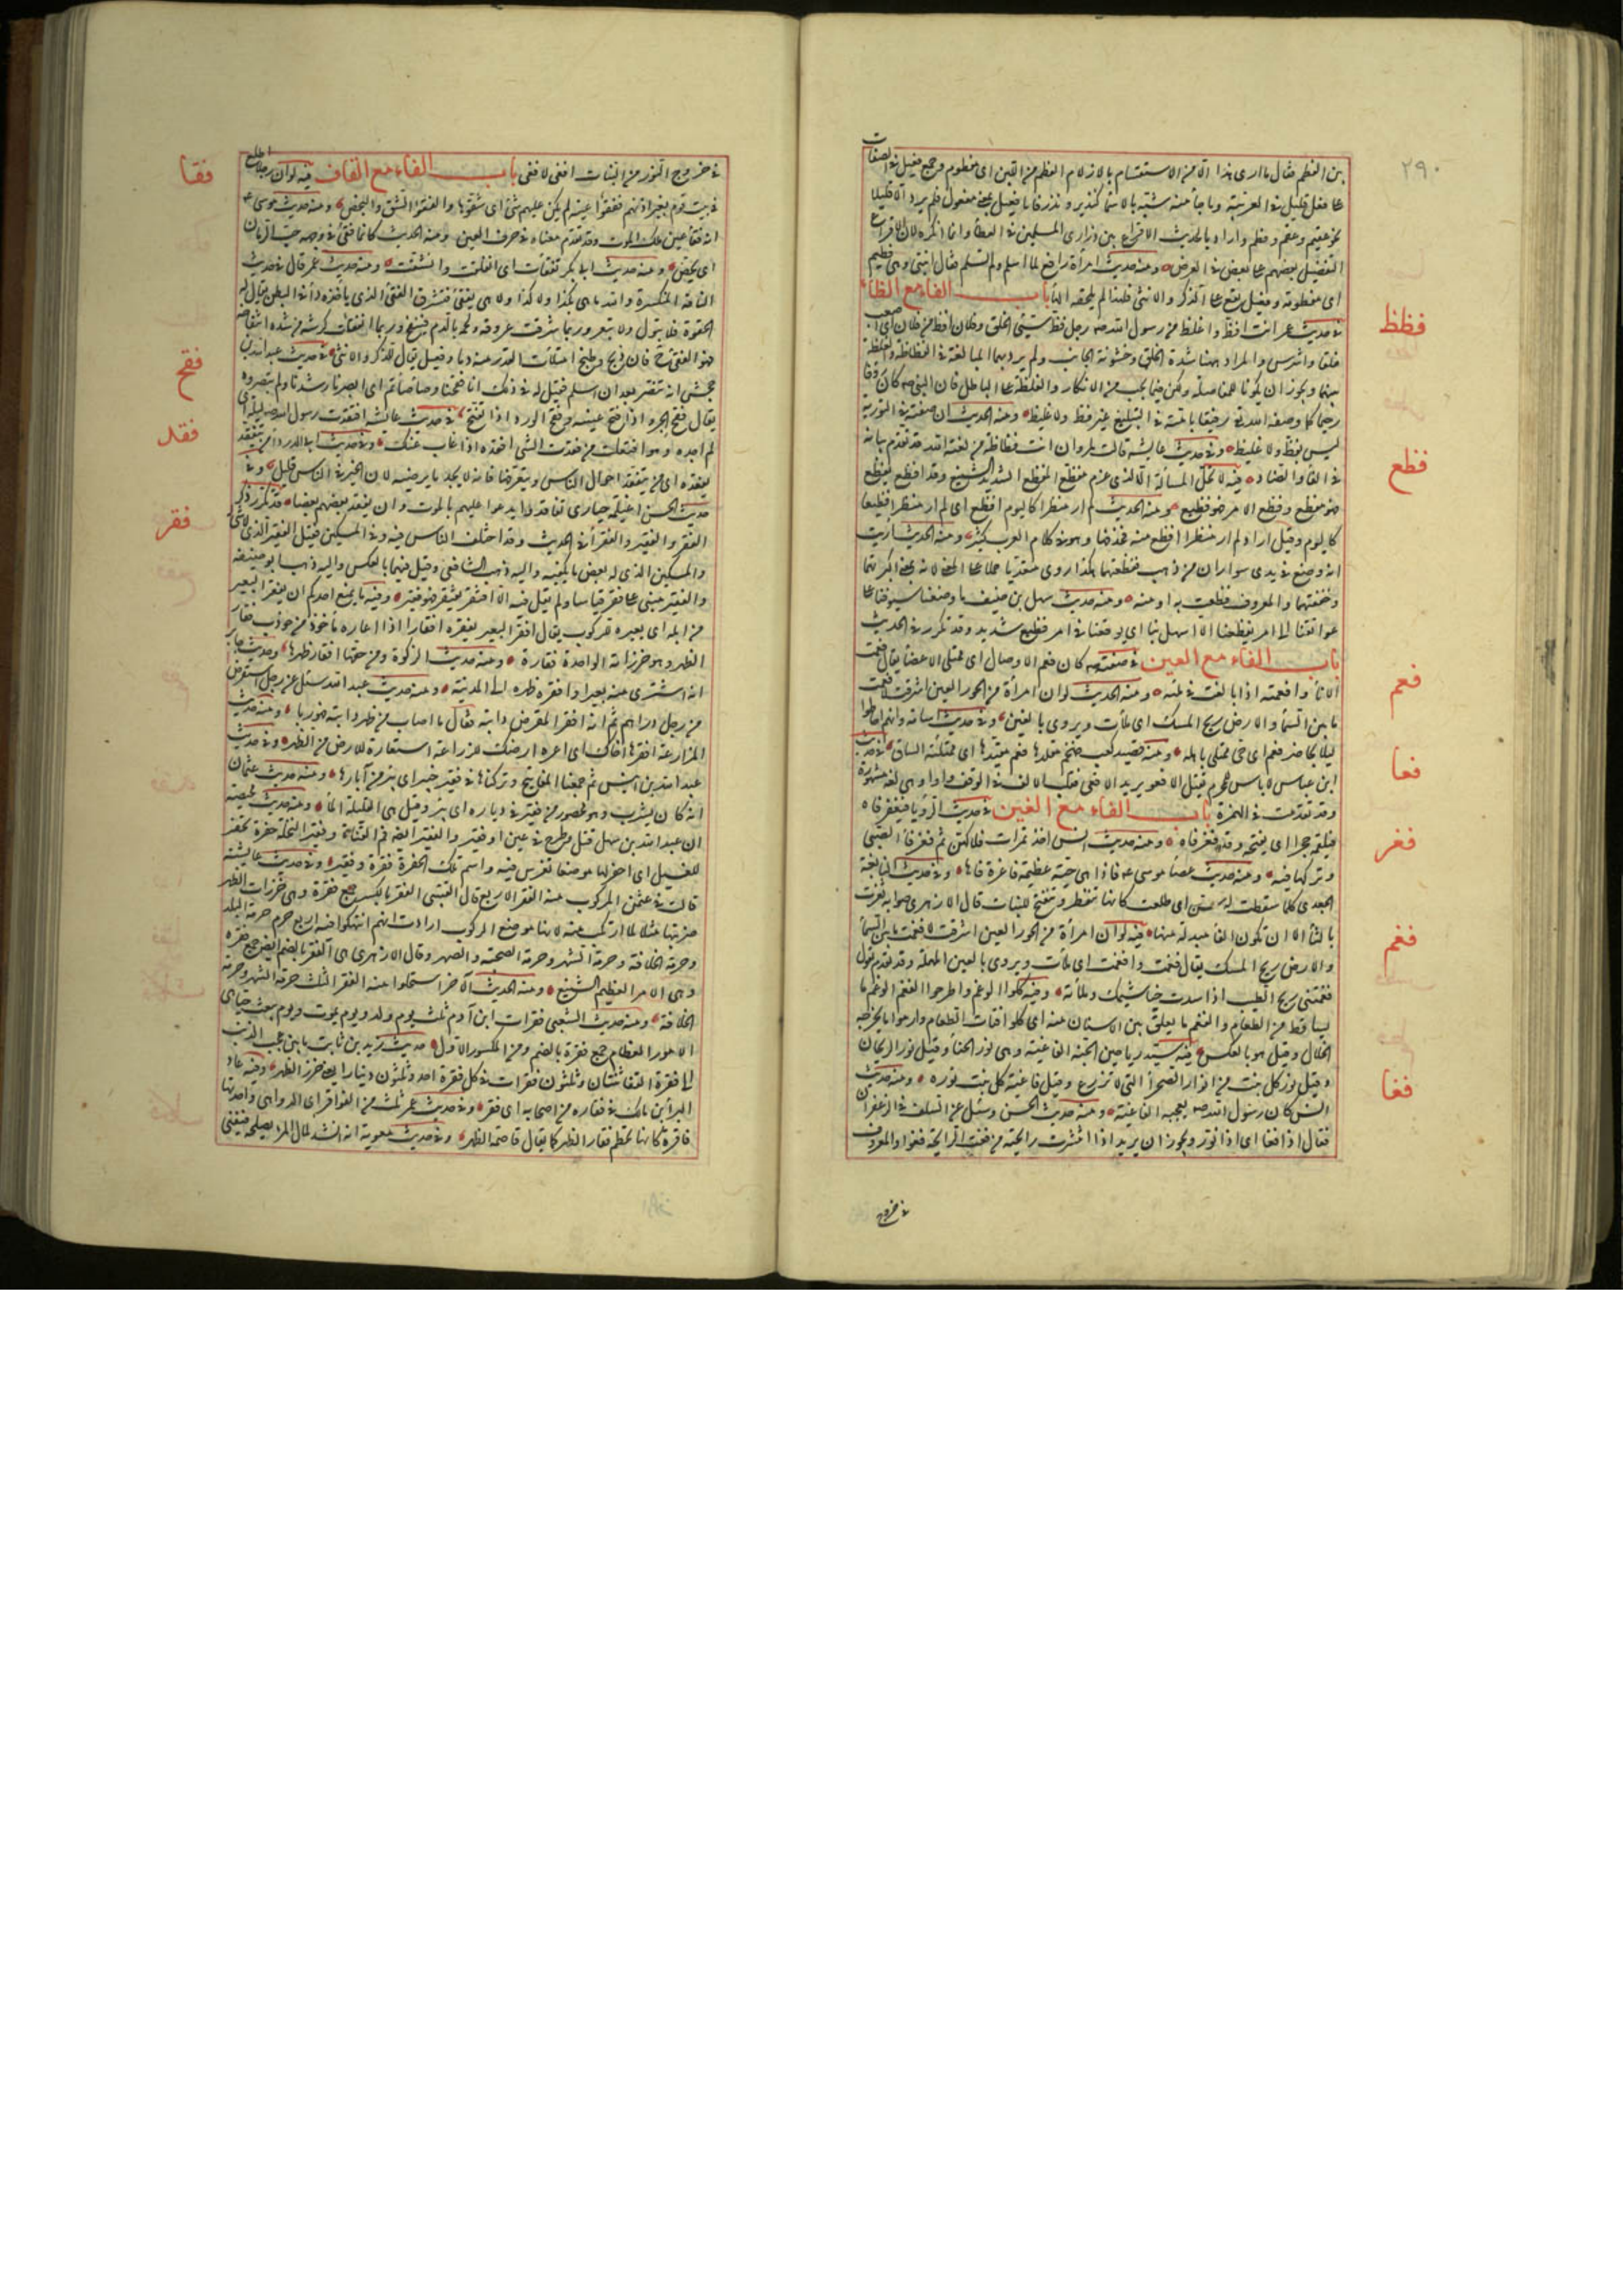 ٢٩٠
بين الفطم فقال ما ارى هذا الا من الاستقسام بالازلام الفطم من اللبن اى مفطوم وجمع فعيل فى الصفات
على فعل قليل فى العربية وما جاء منه شبه بالاسماء كنذير ونذر فاما فعيل بمعنى مفعول فلم يرد الا قليلا
نحو عقيم وعقم وفطيم وفطم واراد بالحديث الاقراع بين ذرارى المسلمين فى العطاء وانما انكره لان الاقراع
لتفضيل بعضهم على بعض فى الفرض ومنه حديث امرأة رافع لما اسلم ولم تسلم فقال ابنتى وهى فطيم
اى مفطومة وفعيل يقع على الذكر والانثى فلهذا لم تلحقه الهاء باب الفاء مع الظاء
فظظ
فى حديث عمر انت افظ واغلظ من رسول الله صم رجل فظ سيئ الخلق وفلان افظ من فلان اى اصعب
خلقا واشرس والمراد ههنا شدة الخلق وخشونة الجانب ولم يرد بهما المبالغة فى الفظاظة والغلظة
بينهما ويجوز ان يكونا للمفاضلة ولكن فيما يجب من الانكار والغلظة على اهل الباطل فان النبى صم كان رؤفا
رحيما كما وصفه الله تع رفيقا بامته فى التبليغ غير فظ ولا غليظ ومنه الحديث ان صفته فى التورية
ليس بفظ ولا غليظ وفى حديث عايشة قالت لمروان انت فظاظة من لعنة الله قد تقدم بيانه
فظع
فى الفاء والضاد فيه لا تحل المسألة الا لذى غرم مفظع المفظع الشديد الشنيع وقد افظع يفظع
فهو مفظع وفظع الامر فهو فظيع ومنه الحديث لم ار منظرا كاليوم افظع اى لم ار منظرا فظيعا
كاليوم وقيل اراد لم ار منظرا افظع منه فحذفها وهو فى كلام العرب كثير ومنه الحديث اريت
انه وضع فى يدى سواران من ذهب ففظعتهما هكذا روى متعديا حملا على المعنى لانه بمعنى اكبرتهما
وخفتهما والمعروف فظعت به او منه ومنه حديث سهل بن حنيف ما وضعنا سيوفنا على
عواتقنا الى امر يفظعنا الا اسهل بنا اى يوقعنا فى امر فظيع شديد وقد تكرر فى الحديث
باب الفاء مع العين فى صفته صم كان فعم الاوصال اى ممتلئ الاعضاء يقال فعمت
فعم
الاناء وافعمته اذا بالغت فى ملئه ومنه الحديث لو ان امرأة من الحور العين اشرفت لافعمت
ما بين السماء والارض ريح المسك اى ملأت ويروى بالغين وفى حديث اسامة وانهم احاطوا
ليلا بحاضر فعم اى حى ممتلئ باهله ومنه قصيد كعب ضخم مقلدها فعم مقيدها اى ممتلئة الساق
فعا
ابن عباس لا باس للمحرم بقتل الافعو يريد الافعى فقلب الالف فى الوقف واوا وهى لغة مشهورة
وقد تقدمت فى الهمزة باب الفاء مع الغين فى حديث الرؤيا فيفغر فاه
فغر
فيلقمه حجرا اى يفتحه وقد فغر فاه ومنه حديث انس اخذ تمرات فلاكهن ثم فغر فا الصبى
وتركها فيه ومنه حديث عصا موسى عم فاذا هى حية عظيمة فاغرة فاها وفى حديث النابغة
الجعدى كلما سقطت له سن فغرت اى طلعت كانها تتفطر وتتفتح للنبات قال الازهرى صوابه ثغرت
بالثاء الا ان تكون الفاء مبدلة منها فيه لو ان امرأة من الحور العين اشرفت لافغمت ما بين السماء
فغم
والارض ريح المسك يقال فغمت وافغمت اى ملأت ويروى بالعين المهملة وقد تقدم تقول
فغمتنى ريح الطيب اذا سدت خياشيمك وملأته وفيه كلوا الوغم واطرحوا الفغم الوغم ما
تساقط من الطعام والفغم ما يعلق بين الاسنان منه اى كلوا فتات الطعام وارموا ما يخرجه
الخلال وقيل هو بالعكس فيه سيد رياحين الجنة الفاغية وهى نور الحناء وقيل نور الريحان
فغا
وقيل نور كل نبت من انوار الصحراء التى لا تزرع وقيل فاغية كل نبت نوره ومنه حديث
انس كان رسول الله صم يعجبه الفاغية ومنه حديث الحسن وسئل عن السلف فى الزعفران
فقال اذا فغا اى اذا نور ويجوز ان يريد اذا انتشرت رائحته من فغت الرائحة فغوا والمعروف
فى خروج
فى خروج النور من النبات افغى لا فغى باب الفاء مع القاف فيه لو ان رجلا اطلع
فقا
فى بيت قوم بغير اذنهم ففقؤا عينه لم يكن عليهم شئ اى شقوها والفقؤ الشق والبخص ومنه حديث موسى عم
انه فقأ عين ملك الموت وقد تقدم معناه فى حرف العين ومنه الحديث كانما فقئ فى وجهه حب الرمان
اى بخص ومنه حديث ابى بكر تفقأت اى انفلقت وانشقت ومنه حديث عمر قال فى حديث
الناقة المنكسرة والله ما هى بكذا ولا كذا ولا هى بفقئ فتشرق الفقئ الذى ياخذه داء فى البطن يقال له
الحقوة فلا يبول ولا يبعر وربما شرقت عروقه ولحمه بالدم فينتفخ وربما انفقأت كرشه من شدة انتفاخه
فهو الفقئ ح فان ذبح وطبخ امتلأت القدر منه دما وفعيل يقال للذكر والانثى فى حديث عبيد الله بن
فقح
جحش انه تنصر بعد ان اسلم فقيل له فى ذلك انا فقحنا وصاصأتم اى ابصرنا رشدنا ولم تبصروه
يقال فقح الجرو اذا فتح عينيه وفقح الورد اذا تفتح فى حديث عائشة افتقدت رسول الله صم ليلة اى
فقد
لم اجده وهو افتعلت من فقدت الشئ افقده اذا غاب عنك وفى حديث ابى الدرداء من يتفقد
يفقد اى من يتفقد احوال الناس ويتعرفها فانه لا يجد ما يرضيه لان الخير فى الناس قليل وفى
حديث الحسن اغيلمة حيارى تفاقدوا يدعو عليهم بالموت وان يفقد بعضهم بعضا قد تكرر ذكر
فقر
الفقر والفقير والفقراء فى الحديث وقد اختلف الناس فيه وفى المسكين فقيل الفقير الذى لا شئ له
والمسكين الذى له بعض ما يكفيه واليه ذهب الشافعى وقيل فيهما بالعكس واليه ذهب ابو حنيفة
والفقير مبنى على فقر قياسا ولم يقل فيه الا افتقر يفتقر فهو فقير وفيه ما يمنع احدكم ان يفقر البعير
من ابله اى يعيره للركوب يقال افقر البعير يفقره افقارا اذا اعاره ماخوذ من ركوب فقار
الظهر وهو خرزاته الواحدة فقارة ومنه حديث الزكوة ومن حقها افقار ظهرها وحديث جابر
انه اشترى منه بعيرا وافقره ظهره الى المدينة ومنه حديث عبد الله سئل عن رجل استقرض
من رجل دراهم ثم انه افقر المقرض دابته فقال ما اصاب من ظهر دابته فهو ربا ومنه حديث
المزارعة افقرها اخاك اى اعره ارضك للزراعة استعارة للارض من الظهر وفى حديث
عبد الله بن انيس ثم جمعنا المفاتيح وتركناها فى فقير خيبر اى بئر من آبارها ومنه حديث عثمان
انه كان يشرب وهو محصور من فقير فى دياره اى بئر وقيل هى القليلة الماء ومنه حديث محيصة
ان عبد الله بن سهل قتل وطرح فى عين او فقير والفقير ايضا فم القناة وفقير النخلة حفرة تحفر
للفسيل اى احفر لها موضعا تغرس فيه واسم تلك الحفرة فقرة وفقير وفى حديث عايشة
قالت فى عثمن المركوب منه الفقر الاربع قال القتيبى الفقر بالكسر جمع فقرة وهى خرزات الظهر
ضربتها مثلا لما ارتكب منه لانها موضع الركوب ارادت انهم انتهكوا فيه اربع حرم حرمة البلد
وحرمة الخلافة وحرمة الشهر وحرمة الصحبة والصهر وقال الازهرى هى الفقر بالضم ايضا جمع فقرة
وهى الامر العظيم الشنيع ومنه الحديث الآخر استحلوا منه الفقر الثلث حرمة الشهر وحرمة
الخلافة ومنه حديث الشعبى فقرات ابن آدم ثلث يوم ولد ويوم يموت ويوم يبعث حيا هى
الامور العظام جمع فقرة بالضم ومن المكسور الاول حديث زيد بن ثابت ما بين عجب الذنب
الى فقرة القفا ثنتان وثلثون فقرات فى كل فقرة احد وثلثون دينارا يعنى خرز الظهر وفيه عاد
البراء بن مالك فى فقارة من اصحابه اى فقر وفى حديث عمر ثلث من الفواقر اى الدواهى واحدتها
فاقرة كانها تحطم فقار الظهر كما يقال قاصمة الظهر وفى حديث معوية انه انشد لمال المرء يصلحه فيغنى